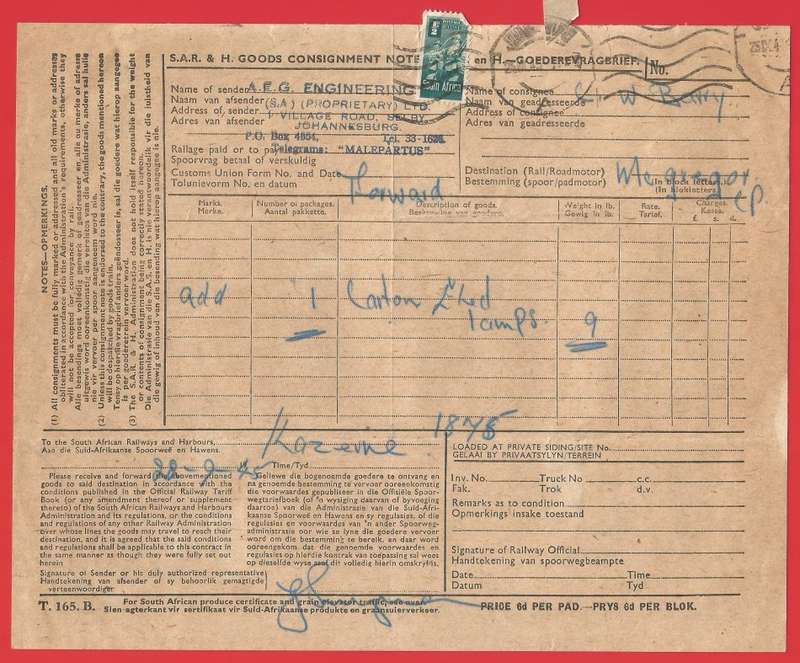 S.A.R. & H. GOODS CONSIGNMENT NOTE
en H.—GOEDEREVRAGBRIEF.
No.
Name of sender
Naam van afsender
Address of sender
Adres van afsender
A.E.G. ENGINEERING
(S.A) (PROPRIETARY) LTD.
1 VILLAGE ROAD, SELBY,
JOHANNESBURG.
P.O. Box 4854,
Telegrams: "MALEPARTUS"
Name of consignee
Naam van geadresseerde
Address of consignee
Adres van geadresseerde
W Barry
Railage paid or to pay
Spoorvrag betaal of verskuldig
Customs Union Form No. and Date
Tolunievorm No. en datum
Forward
Destination (Rail/Roadmotor)
Bestemming (spoor/padmotor)
Mcgregor
C.P.
(In block letters.)
(In blokletters.)
South Africa
Marks.
Merke.
Number of packages.
Aantal pakkette.
Description of goods.
Beskrywing van goedere.
Weight in lb.
Gewig in lb.
Rate.
Tarief.
Charges.
Koste.
£ s. d.
add 1 Carton
lamps. 9
NOTES—OPMERKINGS.
(1) All consignments must be fully marked or addressed and all old marks or addresses
obliterated in accordance with the Administration's requirements, otherwise they
will not be accepted for conveyance by rail.
Alle besendings moet volledig gemerk of geadresseer en alle ou merke of adresse
uitgewis word ooreenkomstig die vereistes van die Administrasie, anders sal hulle
nie vir vervoer per spoor aangeneem word nie.
(2) Unless this consignment note is endorsed to the contrary, the goods mentioned hereon
will be despatched by goods train.
Tensy op hierdie vragbrief anders geëndosseer is, sal die goedere hierop aangegee
per goederetrein vervoer word.
(3) The S.A.R. & H. Administration does not hold itself responsible for the weight
or contents of consignment being correctly stated hereon.
Die Administrasie van die S.A.S. en H. is nie verantwoordelik vir die juistheid van
die gewig of inhoud van die besending wat hierop aangegee is nie.
To the South African Railways and Harbours,
Aan die Suid-Afrikaanse Spoorweë en Hawens.
Kazerne
1875
Time/Tyd
Please receive and forward the abovementioned
goods to said destination in accordance with the
conditions published in the Official Railway Tariff
Book (or any amendment thereof or supplement
thereto) of the South African Railways and Harbours
Administration and its regulations, or the conditions
and regulations of any other Railway Administration
over whose lines the goods may travel to reach their
destination, and it is agreed that the said conditions
and regulations shall be applicable to this contract in
the same manner as though they were fully set out
herein
Geliewe die bogenoemde goedere te ontvang en
na genoemde bestemming te vervoer ooreenkomstig
die voorwaardes gepubliseer in die Offisiële Spoor-
wegtariefboek (of 'n wysiging daarvan of byvoeging
daartoe) van die Administrasie van die Suid-Afri-
kaanse Spoorweë en Hawens en sy regulasies, of die
regulasies en voorwaardes van 'n ander Spoorweg-
administrasie oor wie se lyne die goedere vervoer
word om die bestemming te bereik, en daar word
ooreengekom dat die genoemde voorwaardes en
regulasies op hierdie kontrak van toepassing sal wees
op dieselfde wyse asof dit volledig hierin omskryf is.
Signature of Sender or his duly authorized representative
Handtekening van afsender of sy behoorlik gemagtigde
verteenwoordiger
LOADED AT PRIVATE SIDING/SITE No.
GELAAI BY PRIVAATSYLYN/TERREIN
Inv. No. Truck No c.c.
Fak. Trok d.v.
Remarks as to condition
Opmerkings insake toestand
Signature of Railway Official
Handtekening van spoorwegbeampte
Date Time
Datum Tyd
T. 165. B.
For South African produce certificate and grain elevator traffic, see over.
Sien agterkant vir sertifikaat vir Suid-Afrikaanse produkte en graansuierverkeer.
PRICE 6d PER PAD.—PRYS 6d PER BLOK.